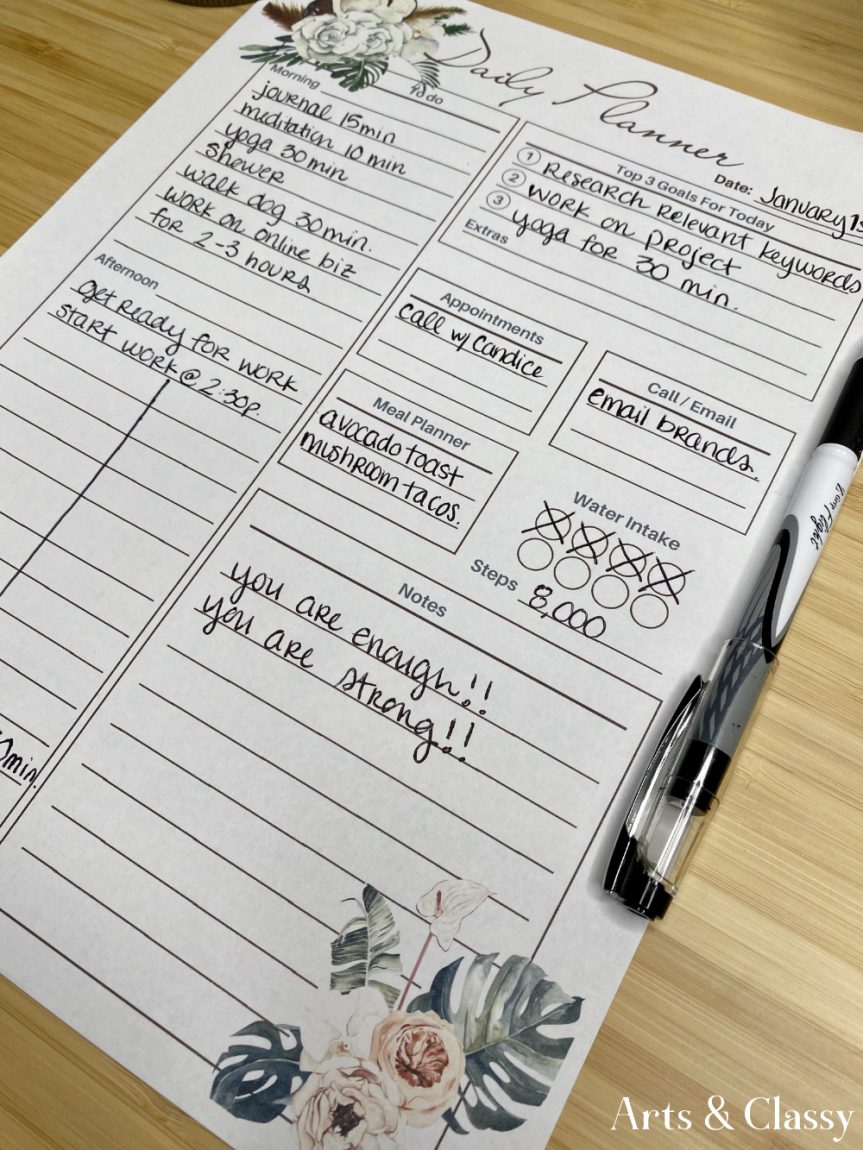 Daily Planner
Date: January 1s
Morning
To do
journal 15min
meditation 10 min
yoga 30 min
shower
walk dog 30min.
work on online biz
for 2-3 hours
Afternoon
get ready for work
start work @ 2:30p.
0min.
Top 3 Goals For Today
1 Research relevant keywords
2 work on project
3 yoga for 30 min.
Extras
Appointments
call w/ Candice
Call / Email
email brands.
Meal Planner
avocado toast
mushroom tacos.
Water Intake
Steps 8,000
Notes
you are enough!!
you are strong!!
Flight
Arts & Classy